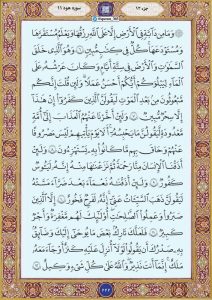 جزء ۱۲
سوره هود ۱۱
۞ وَمَا مِن دَآبَّةٍ فِى ٱلْأَرْضِ إِلَّا عَلَى ٱللَّهِ رِزْقُهَا وَيَعْلَمُ مُسْتَقَرَّهَا
وَمُسْتَوْدَعَهَا كُلٌّ فِى كِتَٰبٍ مُّبِينٍ ٦ وَهُوَ ٱلَّذِى خَلَقَ
ٱلسَّمَٰوَٰتِ وَٱلْأَرْضَ فِى سِتَّةِ أَيَّامٍ وَكَانَ عَرْشُهُۥ عَلَى
ٱلْمَآءِ لِيَبْلُوَكُمْ أَيُّكُمْ أَحْسَنُ عَمَلًا وَلَئِن قُلْتَ إِنَّكُم
مَّبْعُوثُونَ مِنۢ بَعْدِ ٱلْمَوْتِ لَيَقُولَنَّ ٱلَّذِينَ كَفَرُوٓا۟ إِنْ هَٰذَآ
إِلَّا سِحْرٌ مُّبِينٌ ٧ وَلَئِنْ أَخَّرْنَا عَنْهُمُ ٱلْعَذَابَ إِلَىٰٓ أُمَّةٍ
مَّعْدُودَةٍ لَّيَقُولُنَّ مَا يَحْبِسُهُۥٓ أَلَا يَوْمَ يَأْتِيهِمْ لَيْسَ مَصْرُوفًا
عَنْهُمْ وَحَاقَ بِهِم مَّا كَانُوا۟ بِهِۦ يَسْتَهْزِءُونَ ٨ وَلَئِنْ
أَذَقْنَا ٱلْإِنسَٰنَ مِنَّا رَحْمَةً ثُمَّ نَزَعْنَٰهَا مِنْهُ إِنَّهُۥ لَيَـُٔوسٌ
كَفُورٌ ٩ وَلَئِنْ أَذَقْنَٰهُ نَعْمَآءَ بَعْدَ ضَرَّآءَ مَسَّتْهُ
لَيَقُولَنَّ ذَهَبَ ٱلسَّيِّـَٔاتُ عَنِّىٓ إِنَّهُۥ لَفَرِحٌ فَخُورٌ ١٠ إِلَّا ٱلَّذِينَ
صَبَرُوا۟ وَعَمِلُوا۟ ٱلصَّٰلِحَٰتِ أُو۟لَٰٓئِكَ لَهُم مَّغْفِرَةٌ وَأَجْرٌ
كَبِيرٌ ١١ فَلَعَلَّكَ تَارِكٌۢ بَعْضَ مَا يُوحَىٰٓ إِلَيْكَ وَضَآئِقٌۢ
بِهِۦ صَدْرُكَ أَن يَقُولُوا۟ لَوْلَآ أُنزِلَ عَلَيْهِ كَنزٌ أَوْ جَآءَ مَعَهُۥ
مَلَكٌ إِنَّمَآ أَنتَ نَذِيرٌ وَٱللَّهُ عَلَىٰ كُلِّ شَىْءٍ وَكِيلٌ ١٢
۲۲۲